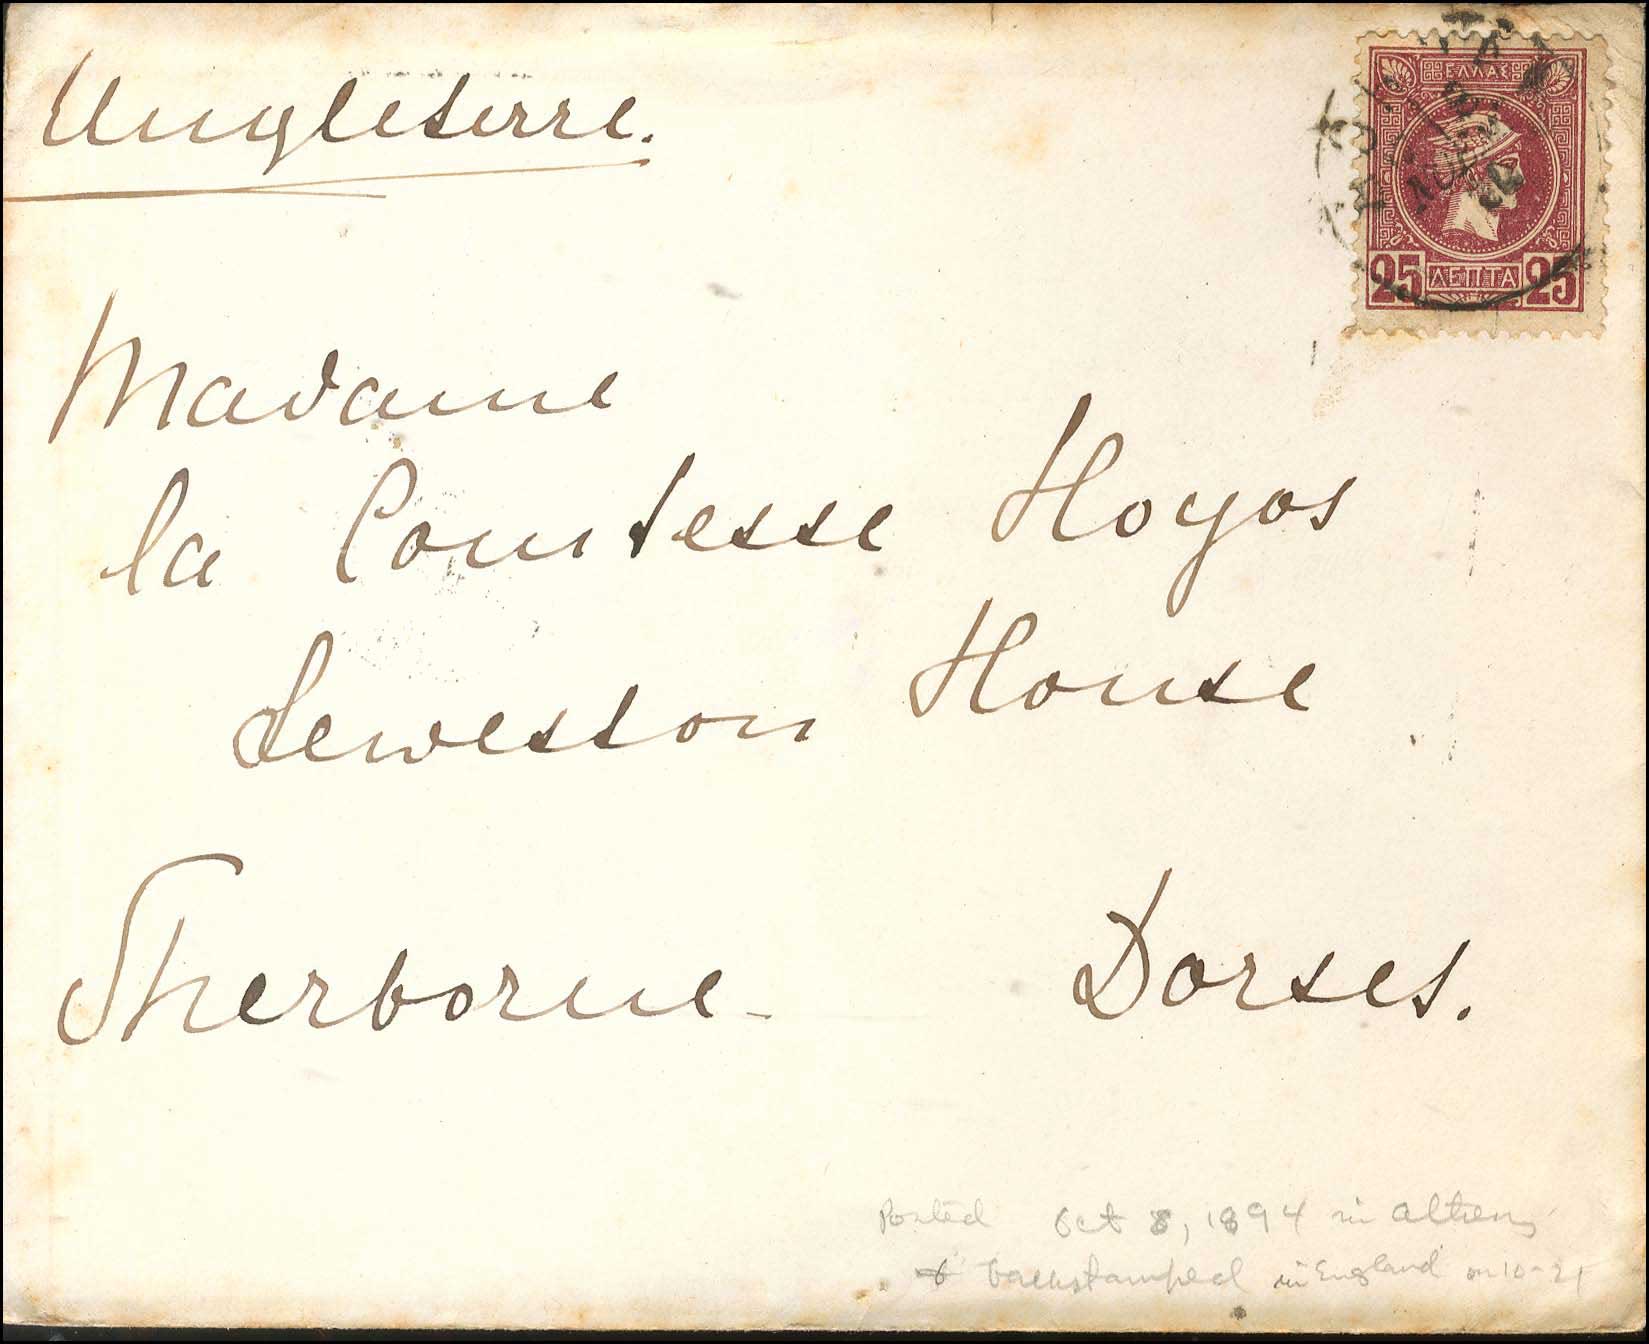 Angleterre.
ΕΛΛΑΣ
25 ΛΕΠΤΑ 25
Madame
la Comtesse Hoyos
Leweston House
Sherborne Dorset.
Posted Oct 8, 1894 in Athens
& backstamped in England on 10-21